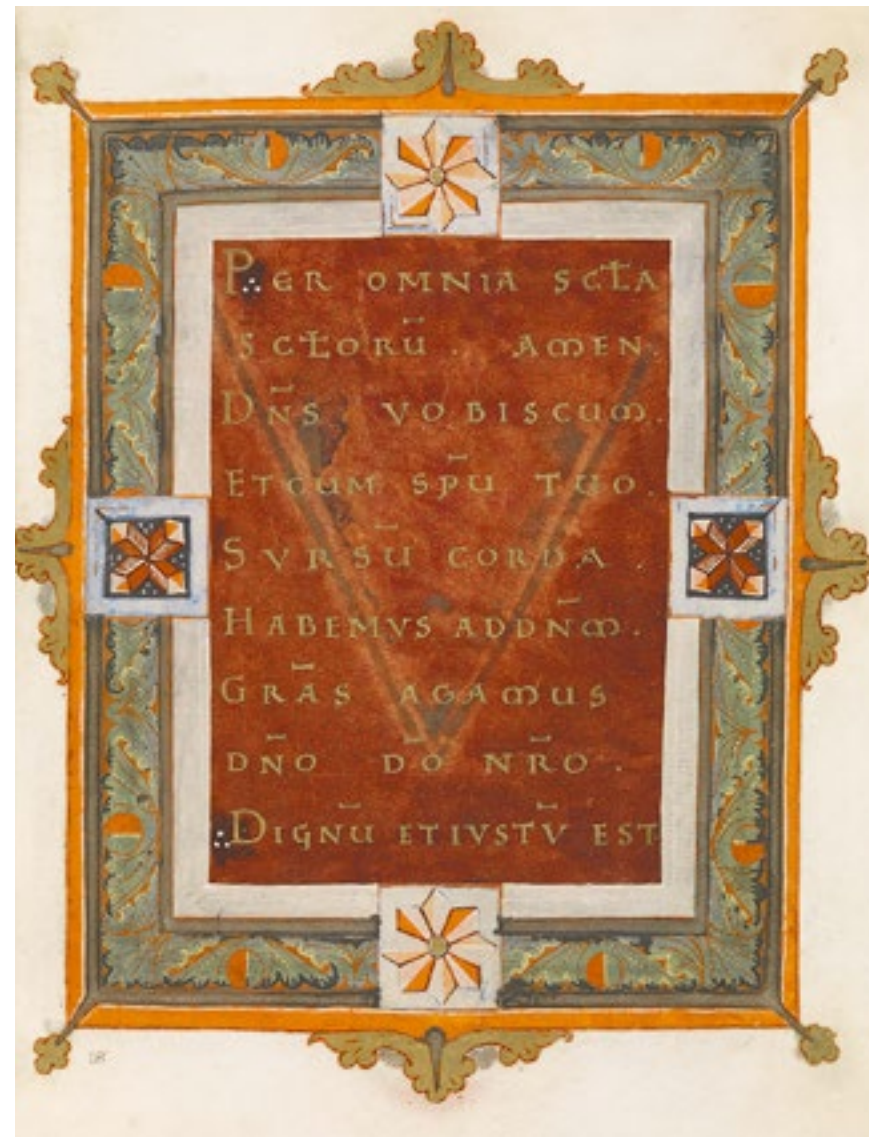 PER OMNIA SCŁA
SCŁORŪ . AMEN.
DN̄S VOBISCUM.
ET CUM SPŪ TUO.
SVRSŪ CORDA .
HABEMVS ADDN̄M.
GRĀS AGAMUS
DN̄O DŌ NR̄O .
DIGNŪ ETIVSTV̄ EST